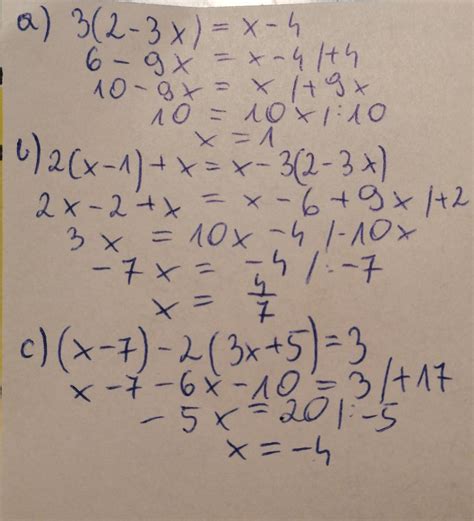 a) 3(2-3x) = x-4
6 - 9x = x-4 /+4
10-9x = x /+9x
10 = 10x /:10
x = 1
b) 2(x-1)+x = x-3(2-3x)
2x-2+x = x-6+9x /+2
3x = 10x-4 /-10x
-7x = -4 /:-7
x = 4/7
c) (x-7)-2(3x+5)=3
x-7-6x-10=3 /+17
-5x=20 /:-5
x=-4